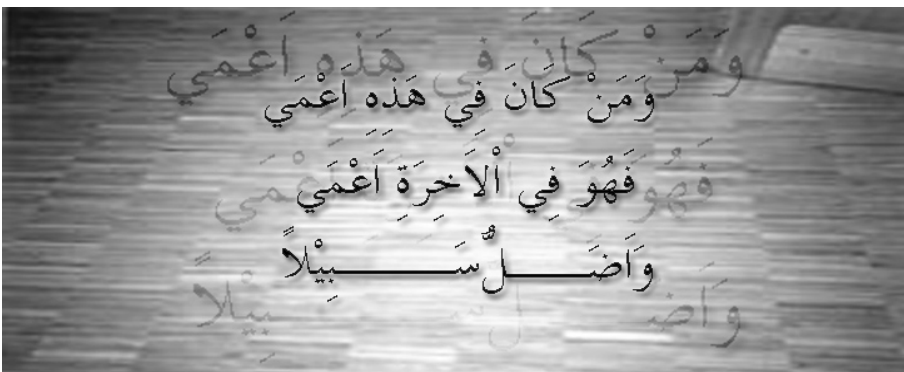 وَمَنْ كَانَ فِي هَذِهِ اَعْمَي
فَهُوَ فِي الْاَخِرَةِ اَعْمَي
وَاَضَلُّ سَبِيْلاً